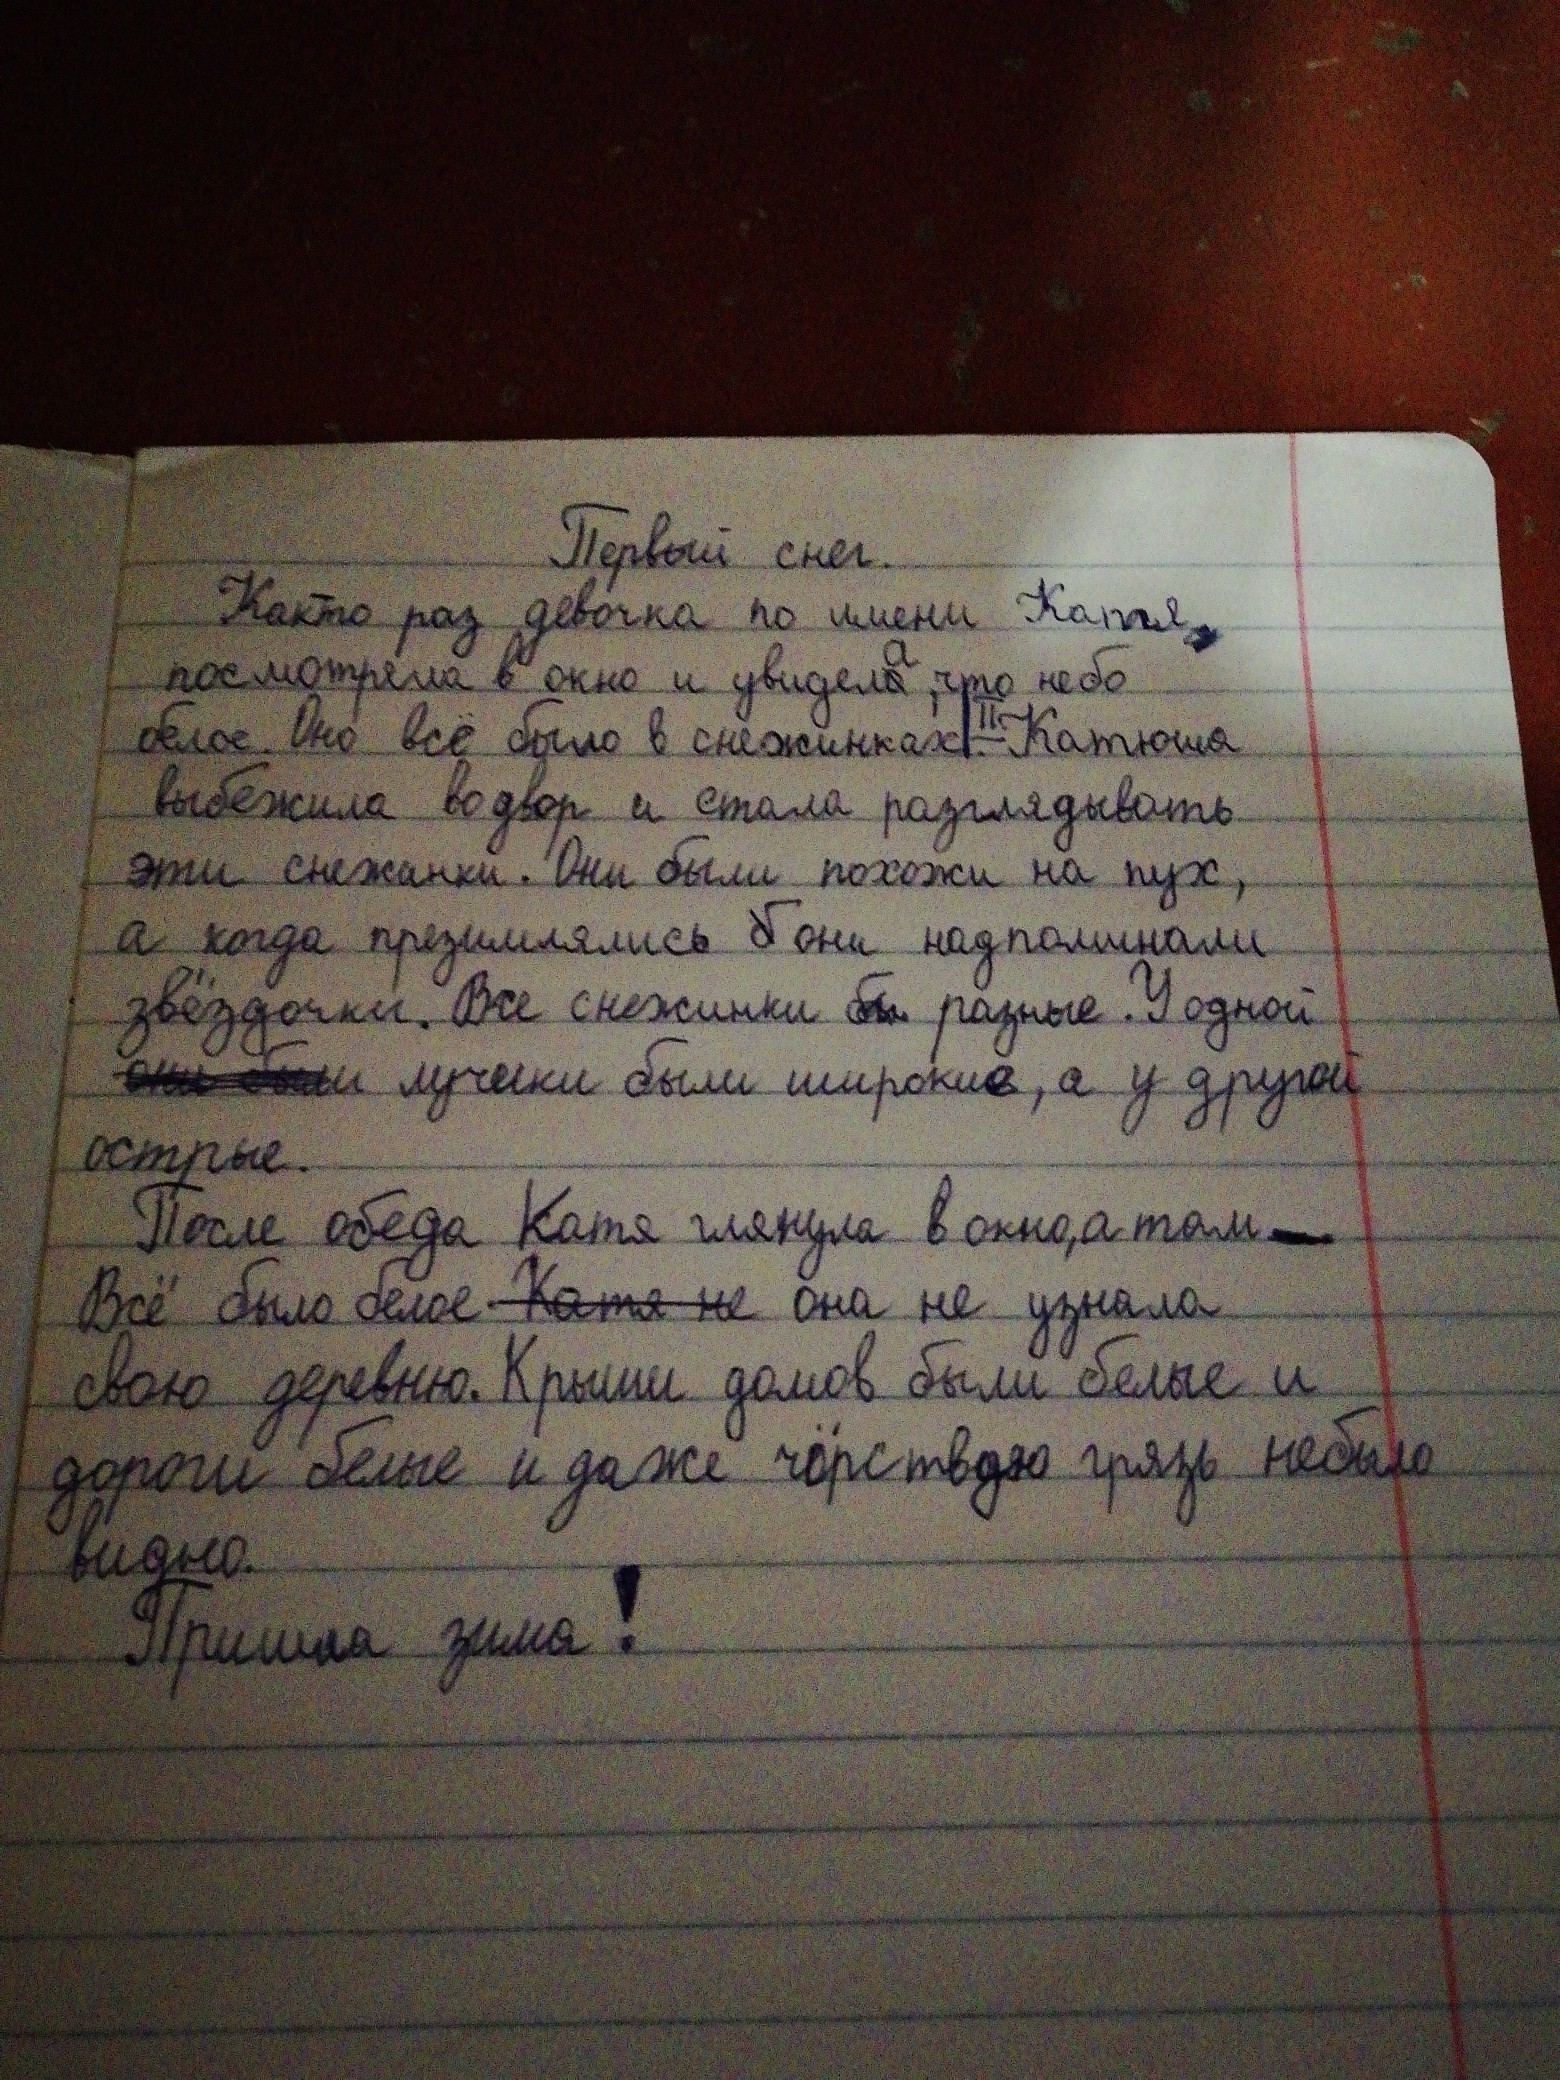 Первый снег.
Както раз девочка по имени Катя,
посмотрела в окно и увидела, что небо
белое. Оно всё было в снежинках. Катюша
выбежила во двор и стала разглядывать
эти снежанки. Они были похожи на пух,
а когда презимлялись они надпоминали
звёздочки. Все снежинки разные. У одной
лучики были широкие, а у другой
острые.
После обеда Катя глянула в окно, а там —
Всё было белое. она не узнала
свою деревню. Крыши домов были белые и
дороги белые и даже чёрствою грязь небыло
видно.
Пришла зима!